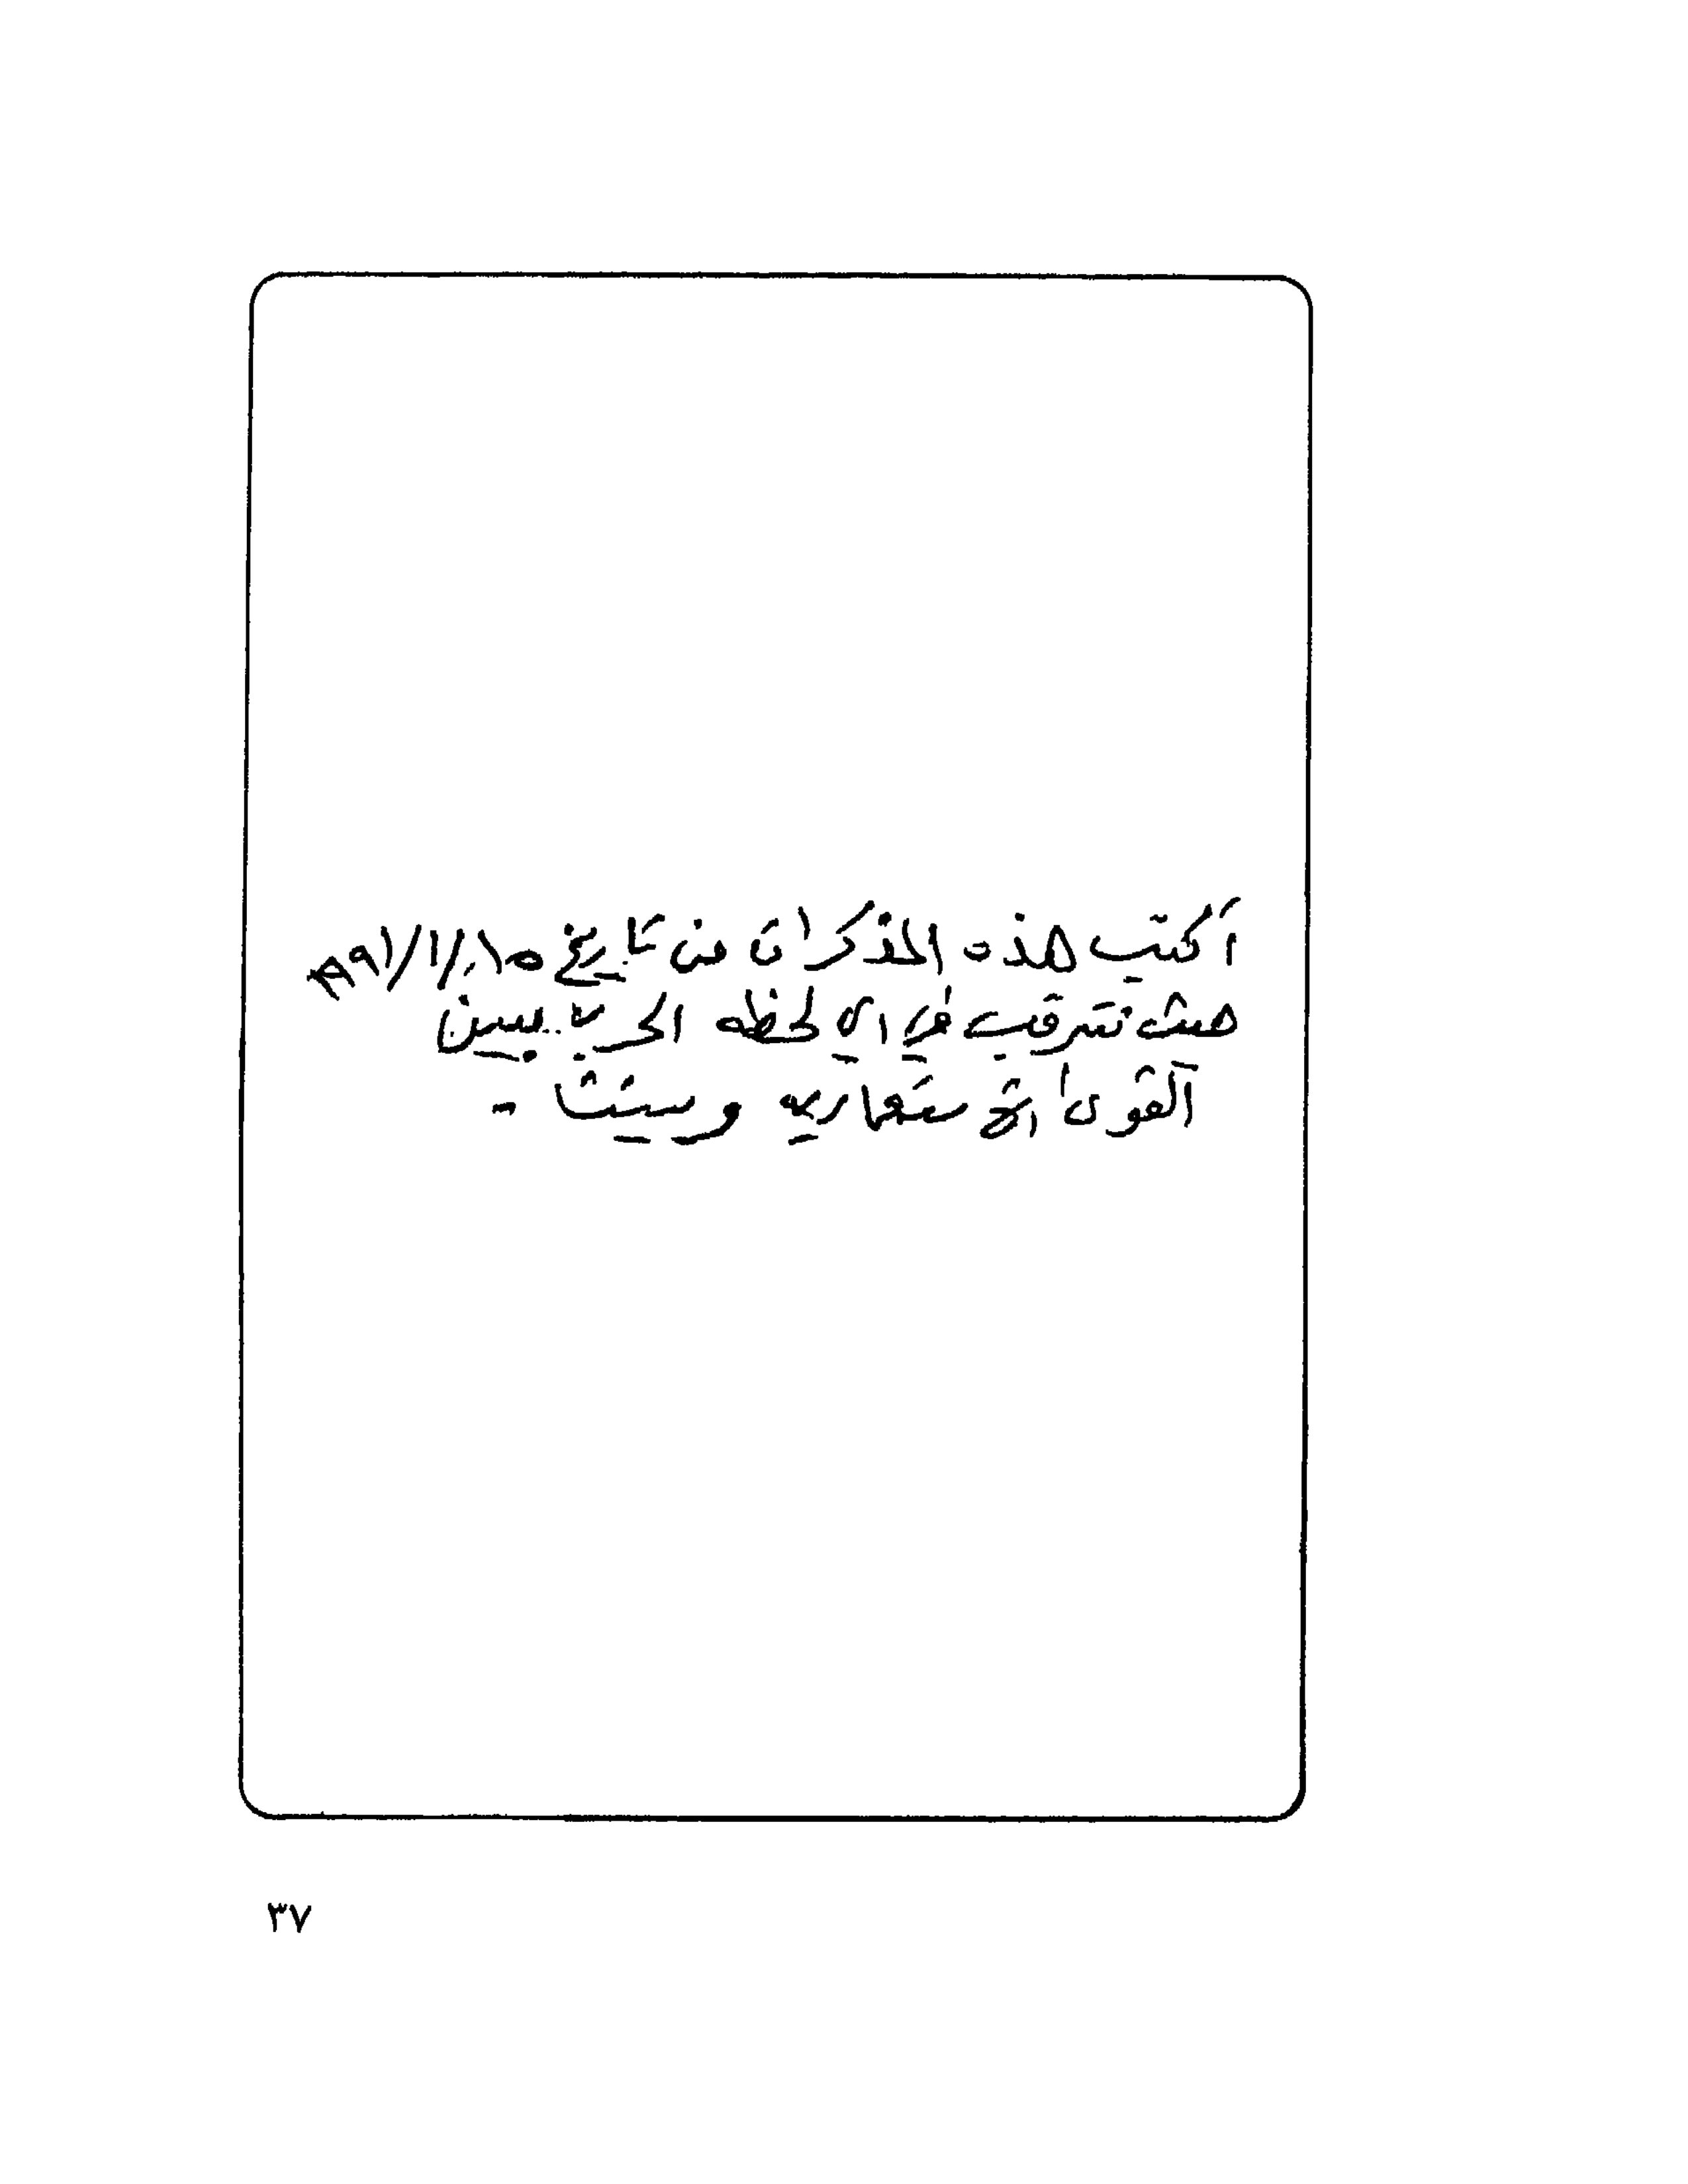 أكتب هذه المذكرات من تاريخ ١٩٩١/١/١٥
حيث نترقب في اي لحظه الحرب بين
القوى الاستعماريه و سيتنا -
٣٧